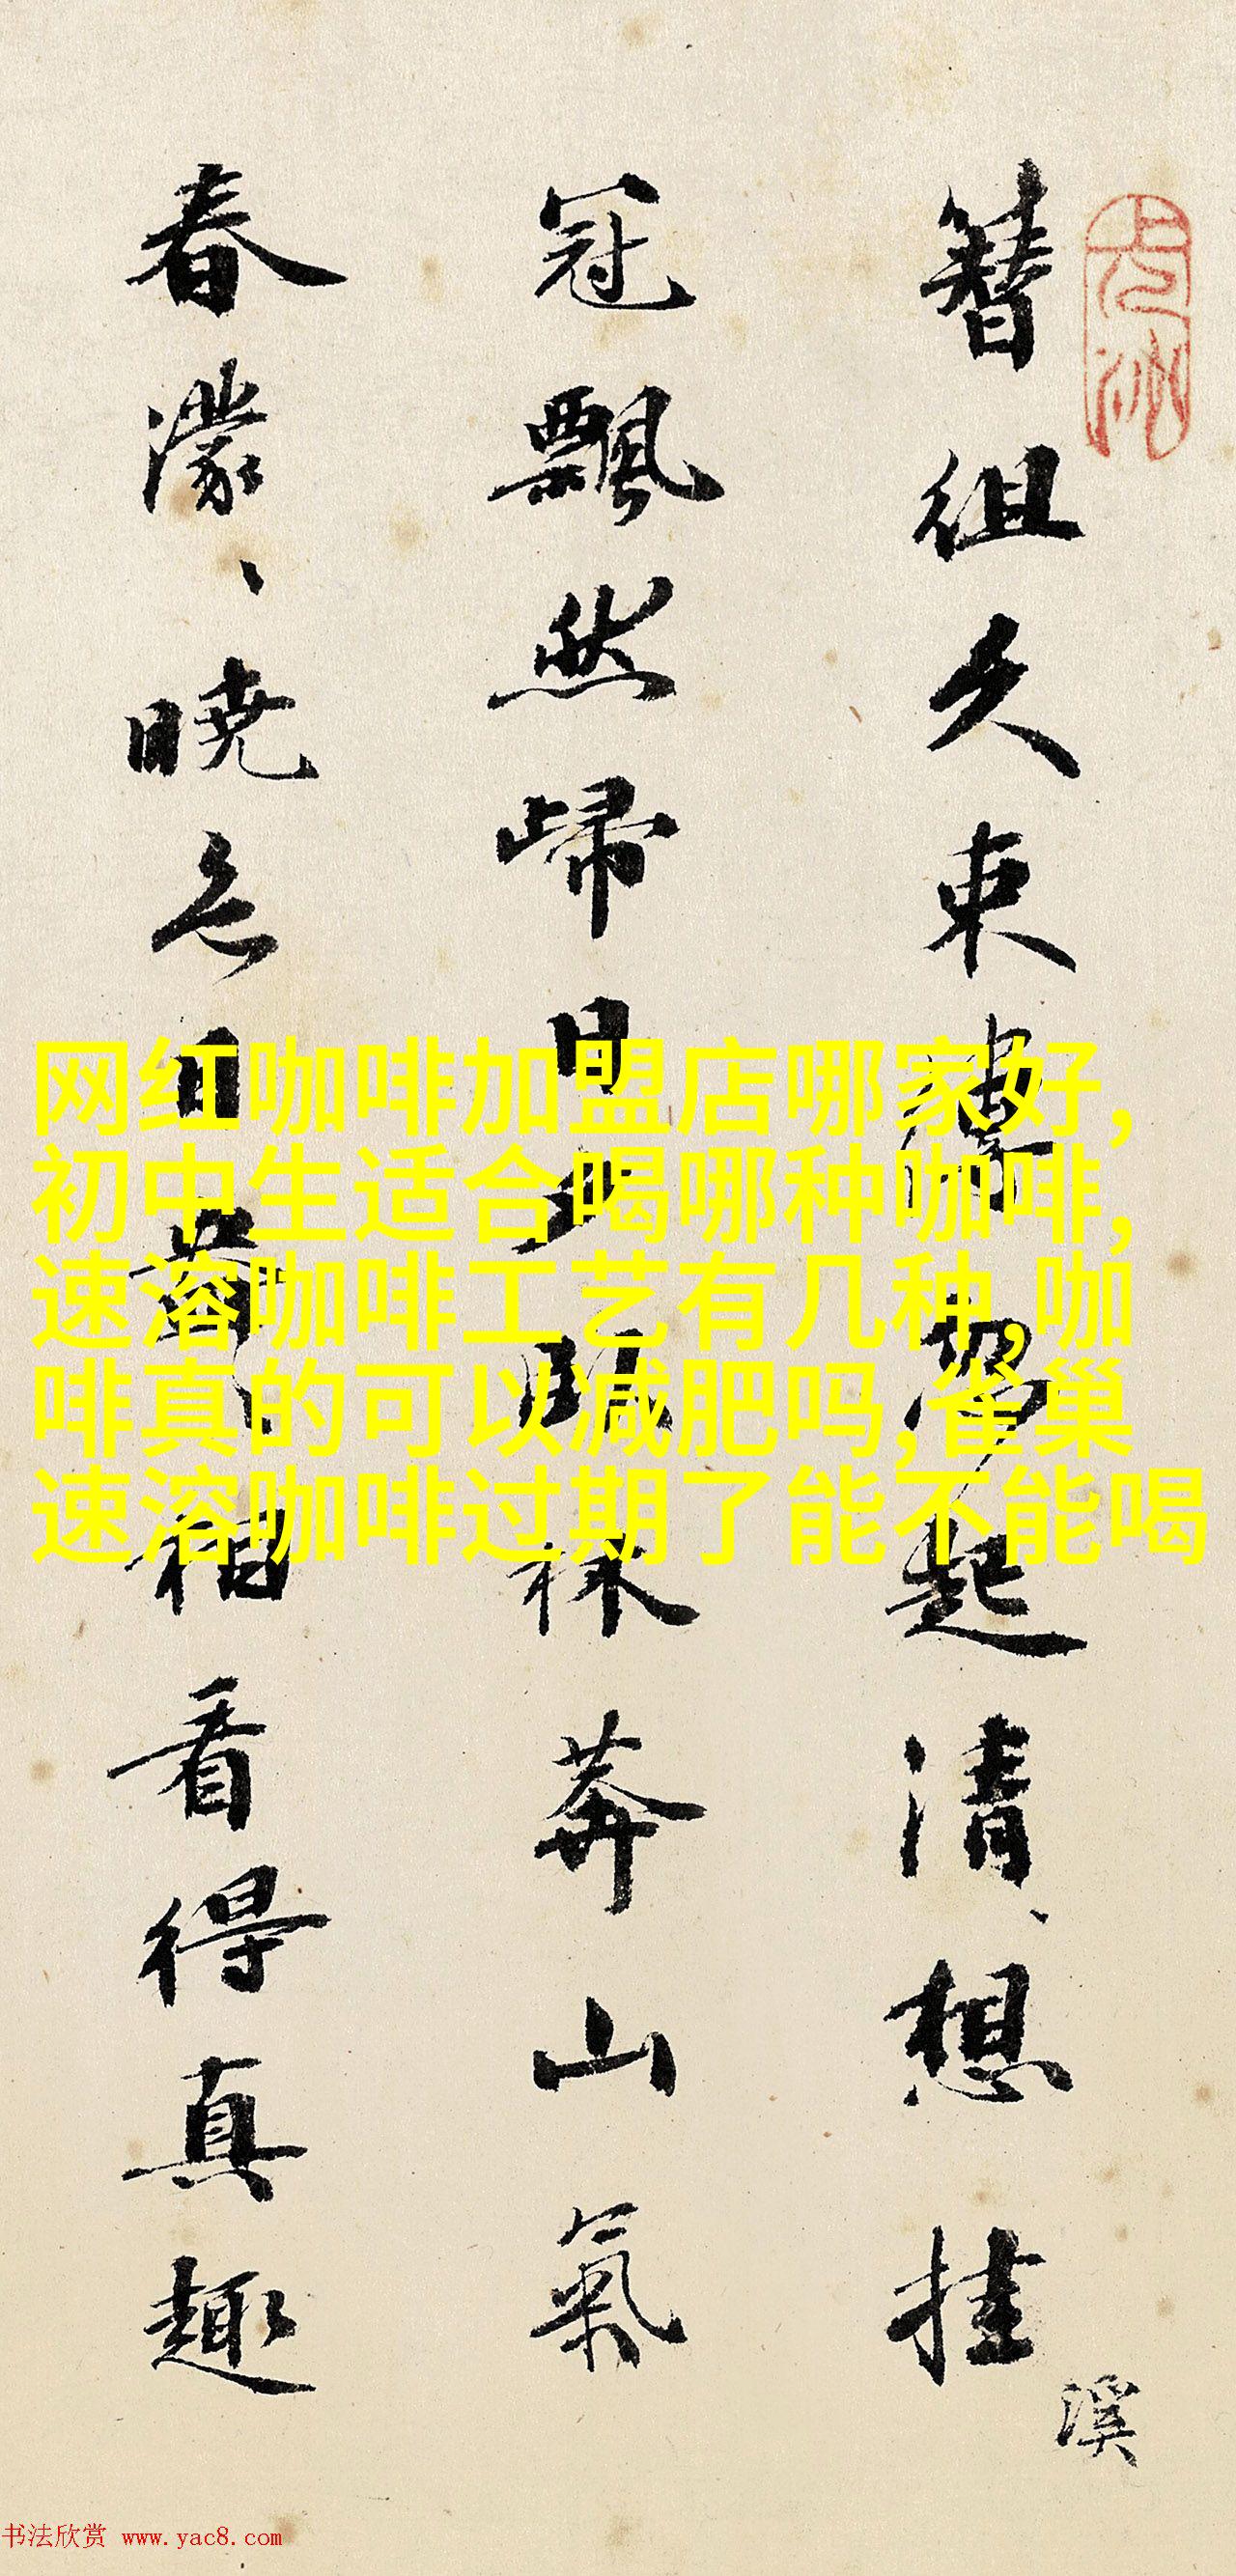 簪徂久束起清想挂
溪
冠飄然歸日夕臥林莽山氣
春濛、曉相看得真趣
网红咖啡加盟店哪家好,
初中生适合喝哪种咖啡,
速溶咖啡工艺有几种,咖
啡真的可以减肥吗,雀巢
速溶咖啡过期了能不能喝
书法欣赏 www.yac8.com